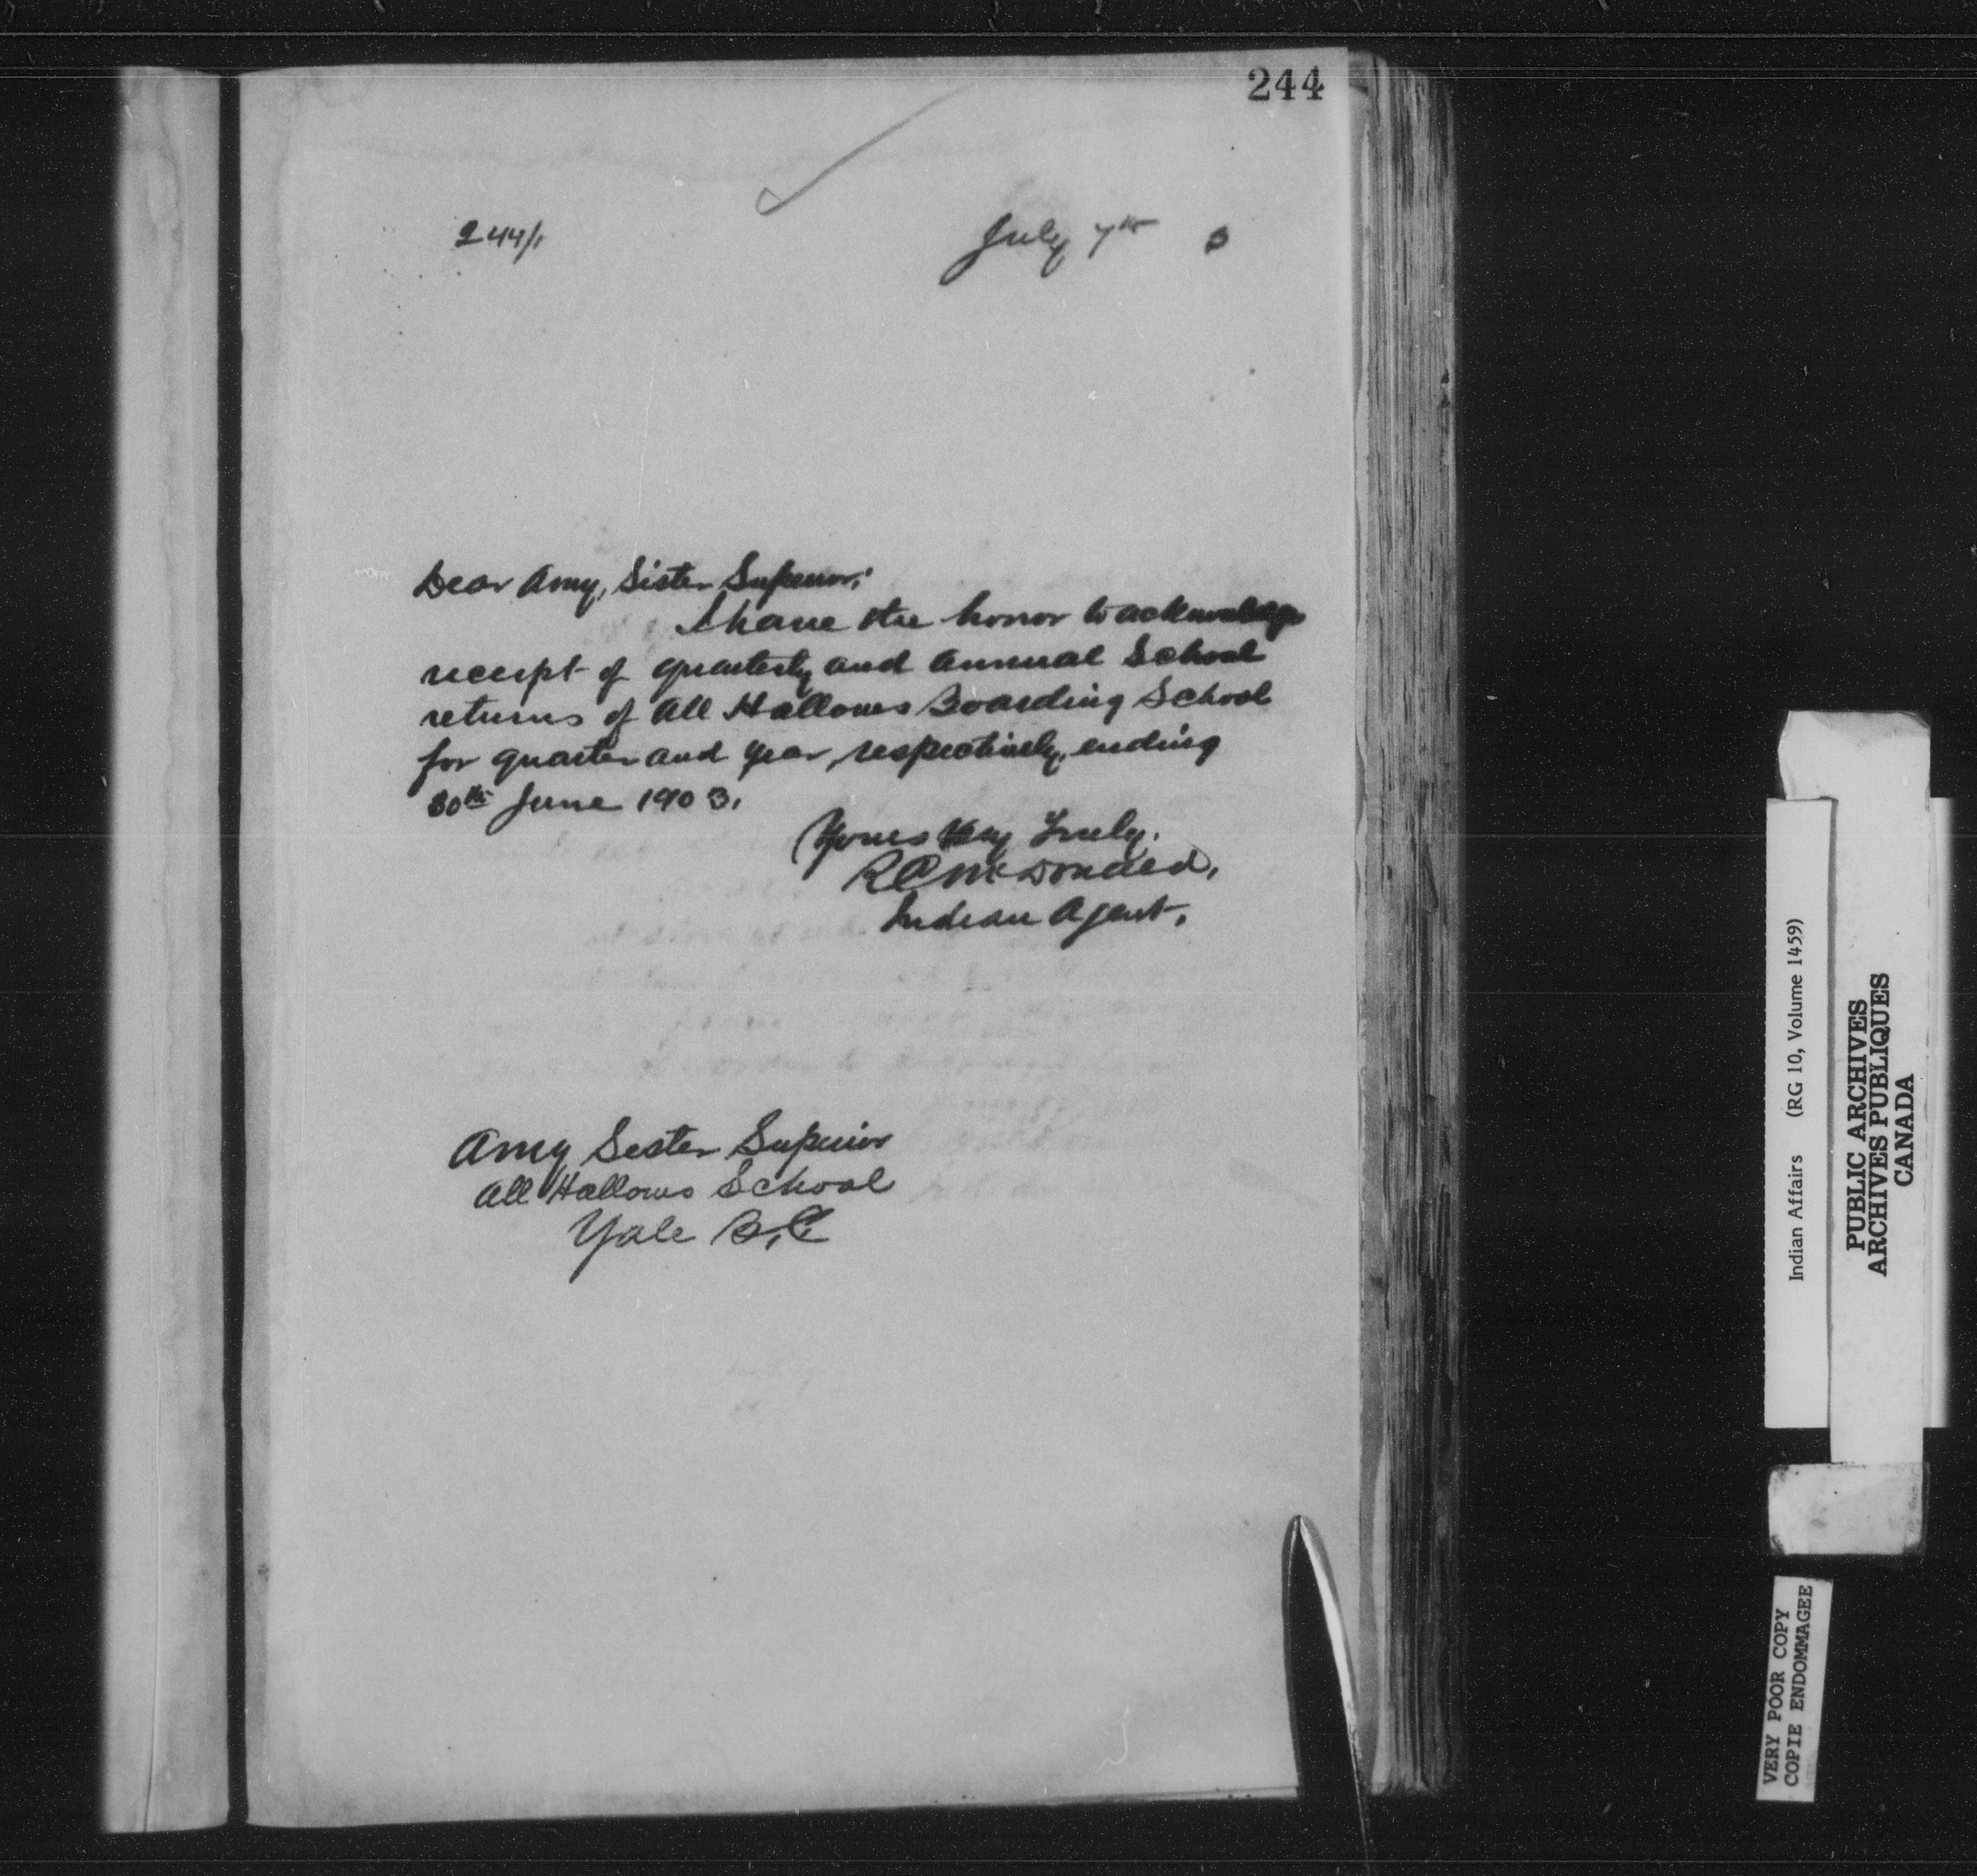 244
244/1 July 7th 3
Dear Amy, Sister Superior;
I have the honor to acknowledge
receipt of quarterly and annual School
returns of All Hallows Boarding School
for quarter and year, respectively, ending
30th June 1903.
Yours Very Truly.
Indian Agent.
Amy Sister Superior
All Hallows School
Yale B.C.
Indian Affairs (RG 10, Volume 1459)
PUBLIC ARCHIVES
ARCHIVES PUBLIQUES
CANADA
VERY POOR COPY
COPIE ENDOMMAGEE